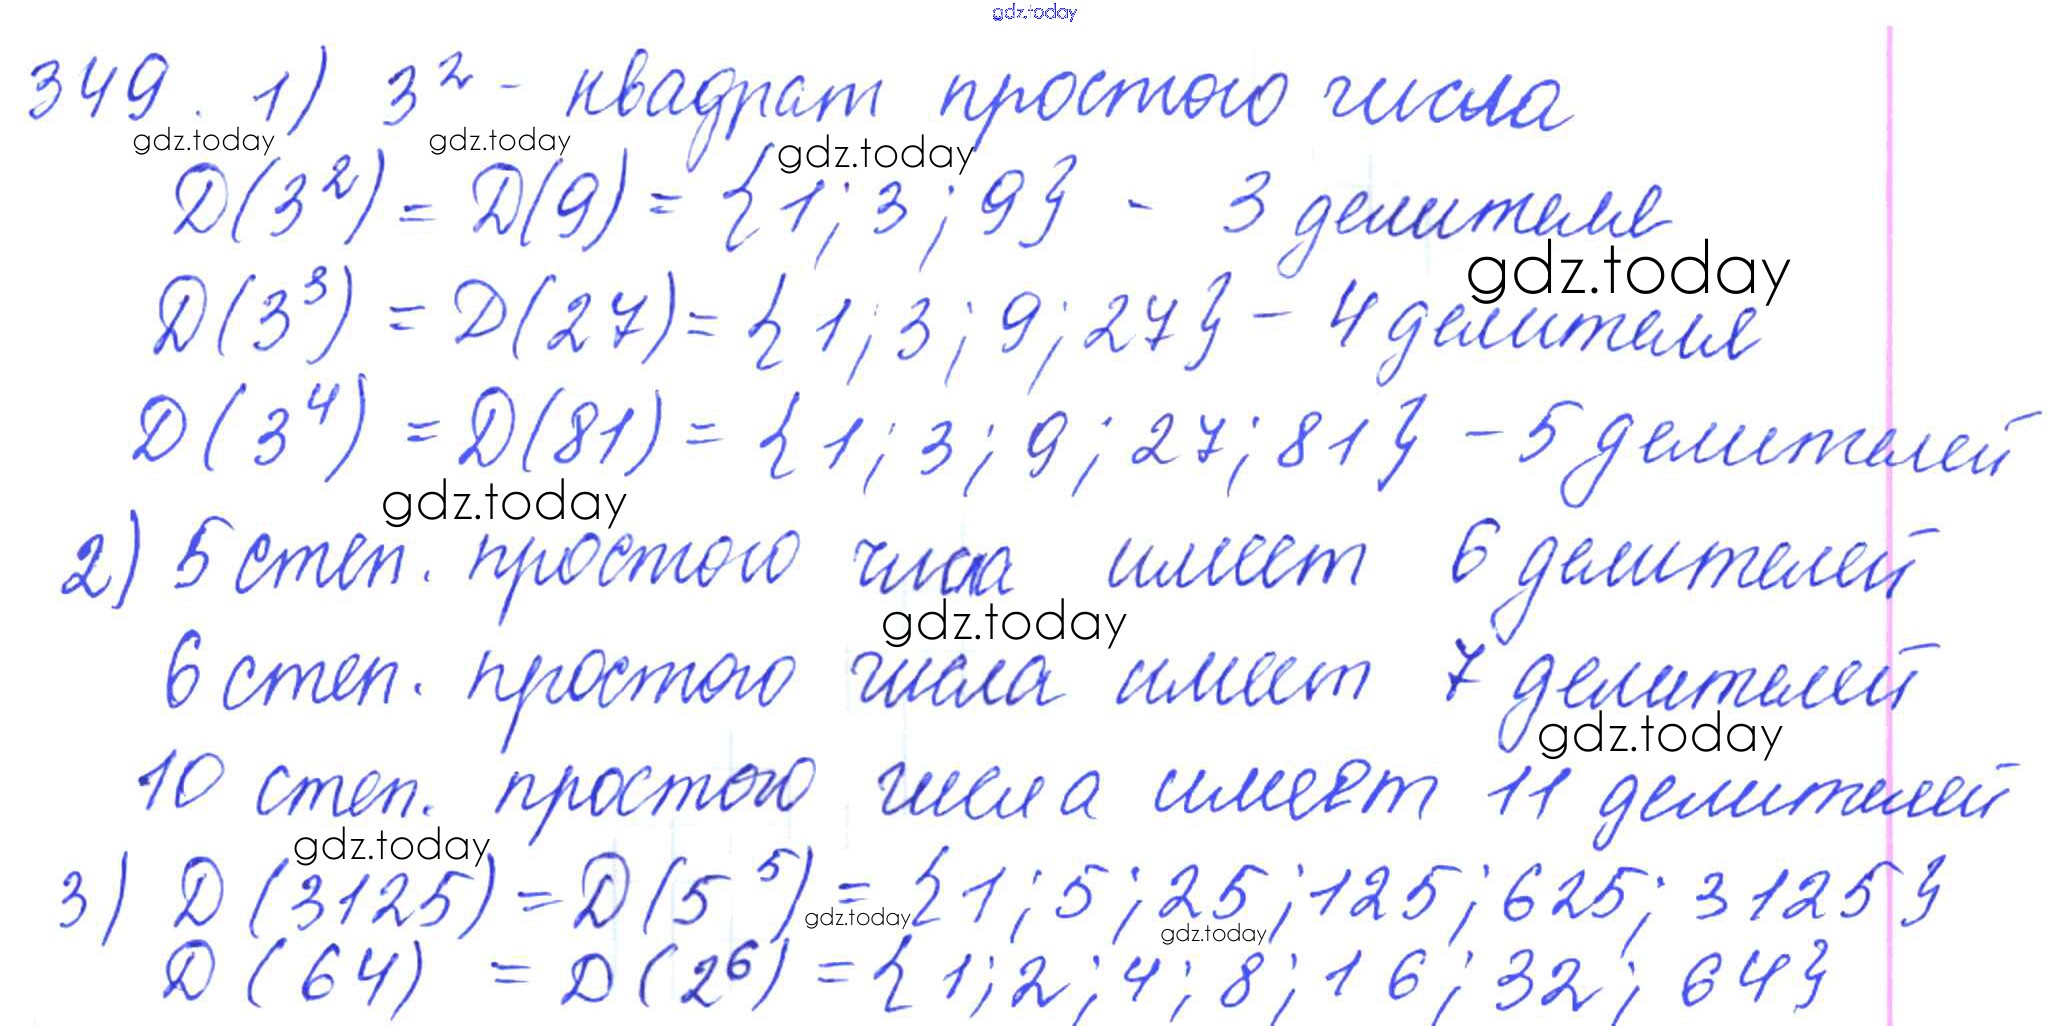 gdz.today
349. 1) 3² - квадрат простого числа
gdz.today gdz.today gdz.today
D(3²) = D(9) = {1; 3; 9} - 3 делителя
gdz.today
D(3³) = D(27) = {1; 3; 9; 27} - 4 делителя
D(3⁴) = D(81) = {1; 3; 9; 27; 81} - 5 делителей
gdz.today
2) 5 степ. простого числа имеет 6 делителей
gdz.today
6 степ. простого числа имеет 7 делителей
gdz.today
10 степ. простого числа имеет 11 делителей
gdz.today
3) D(3125) = D(5⁵) = {1; 5; 25; 125; 625; 3125}
gdz.today gdz.today
D(64) = D(2⁶) = {1; 2; 4; 8; 16; 32; 64}